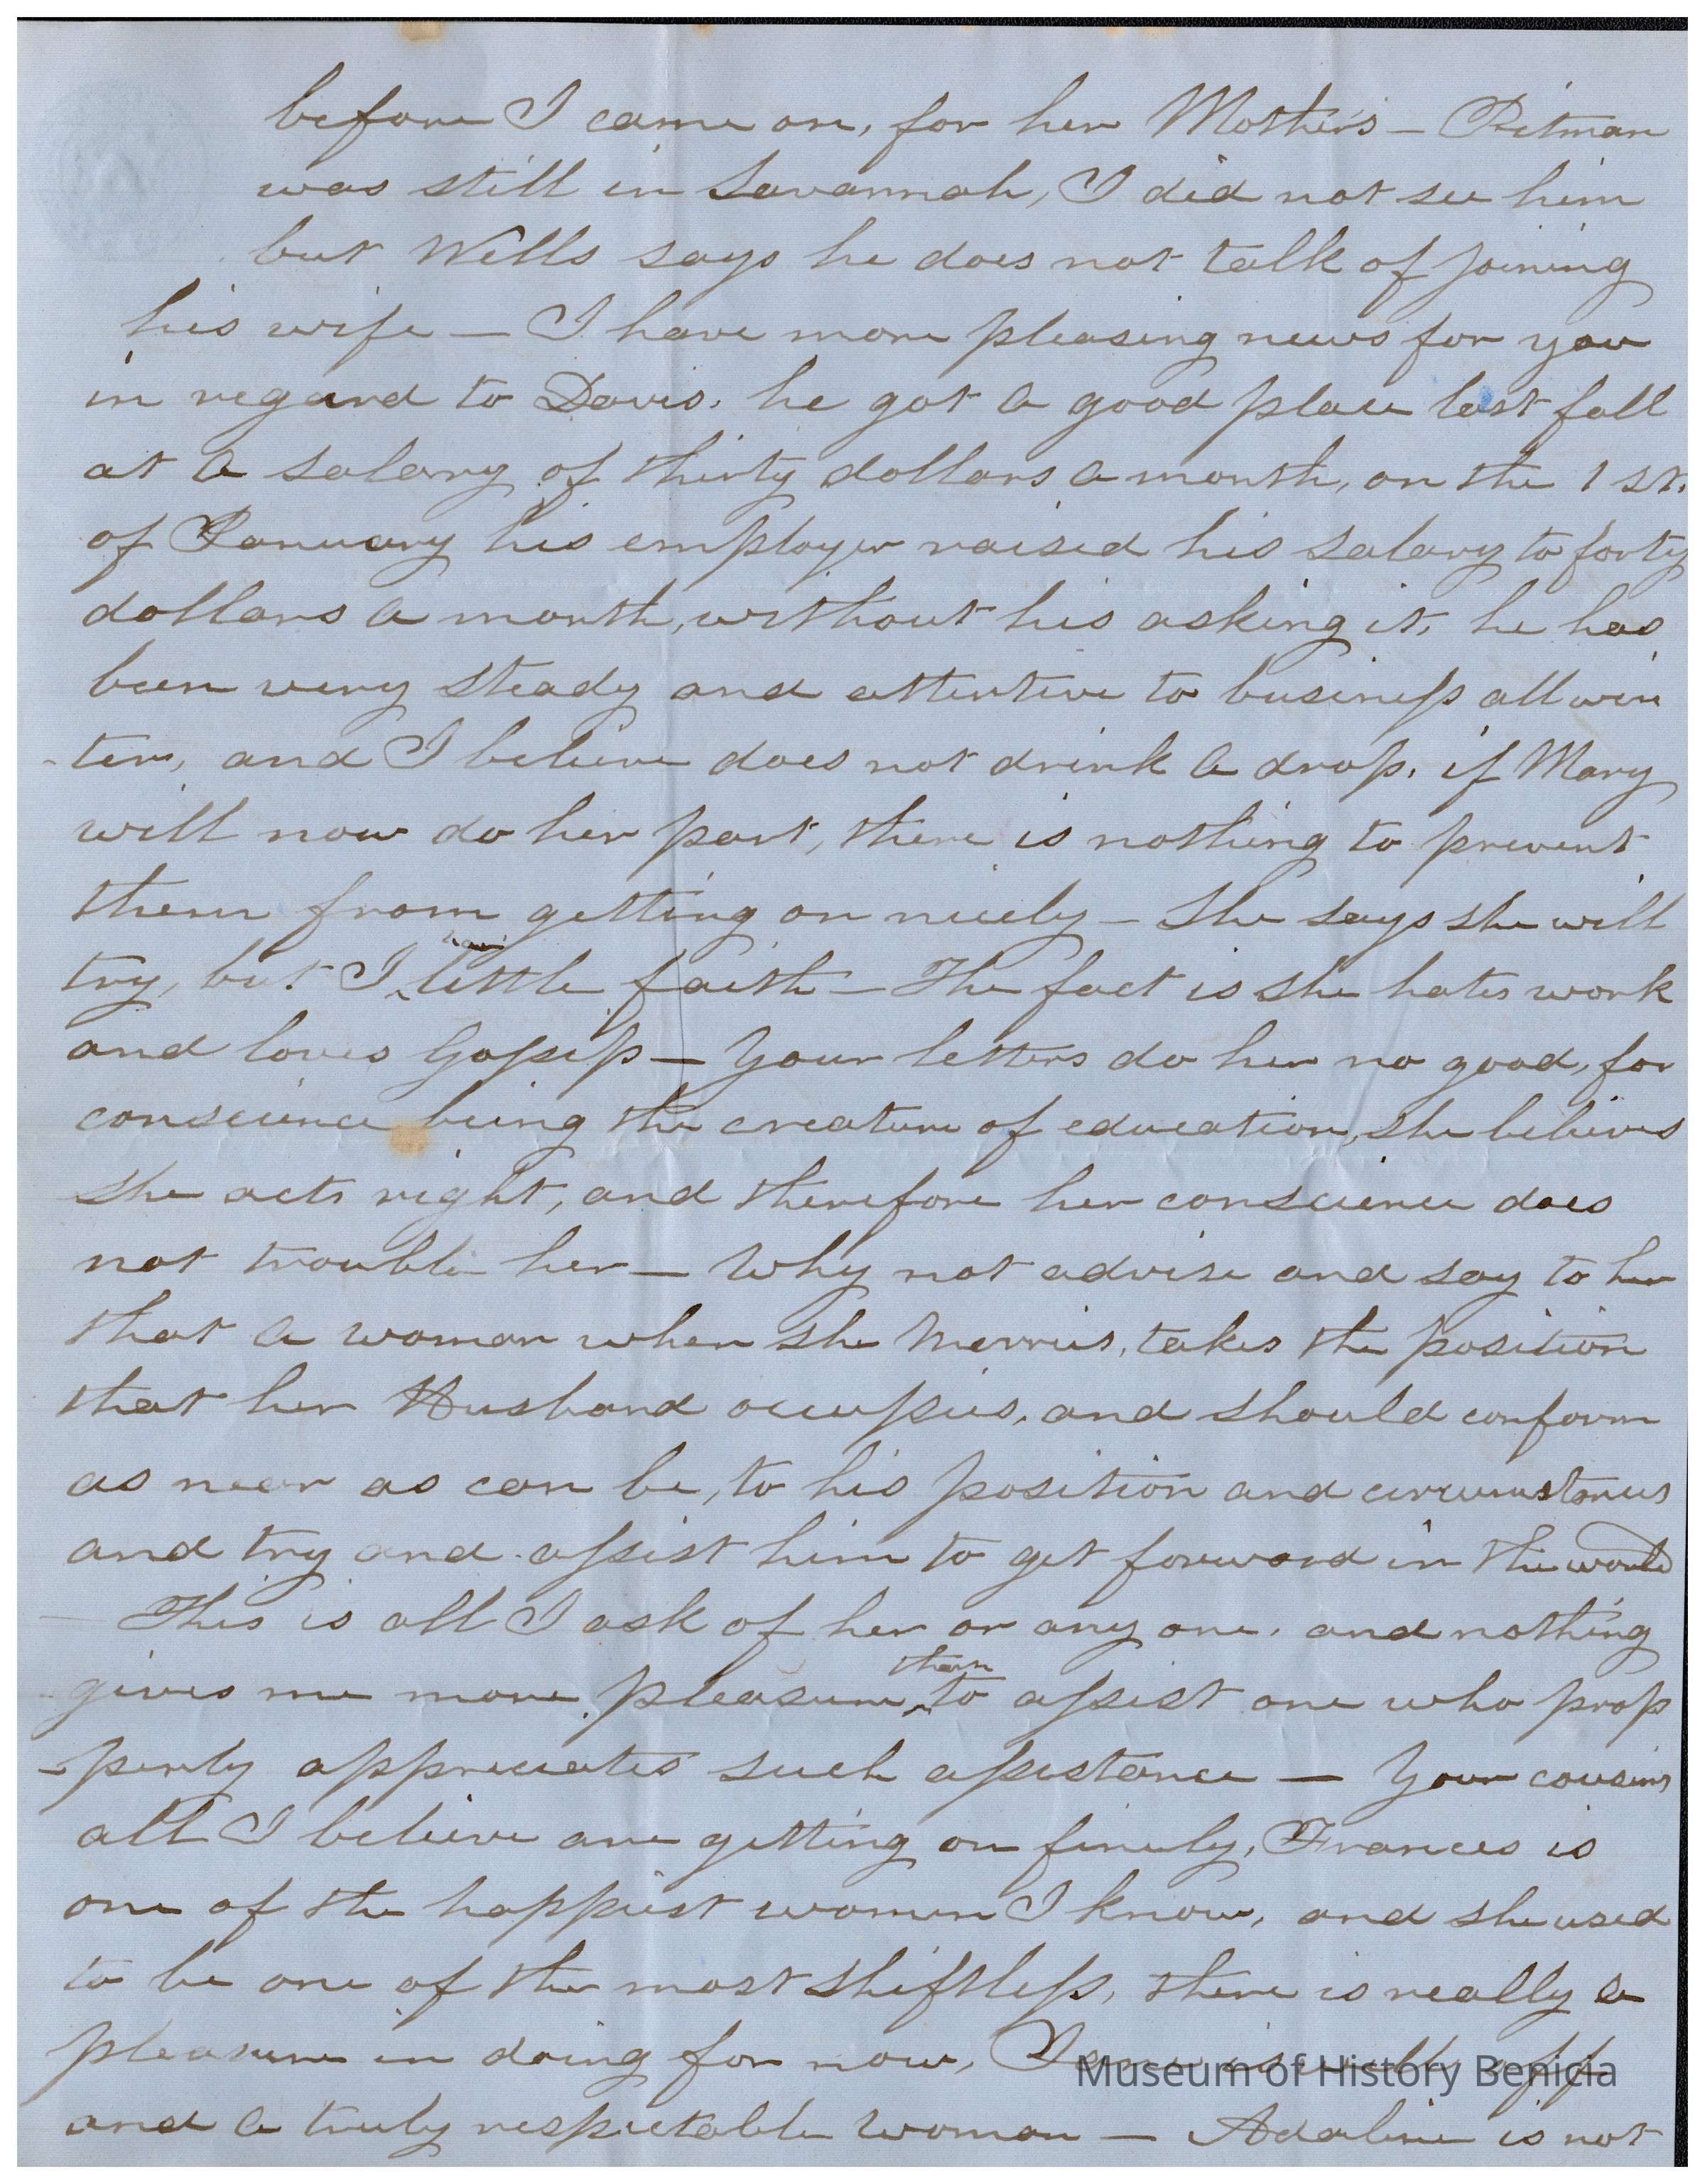 before I came on, for her Mothers — Pitman
was still in Savannah, I did not see him
but Wells says he does not talk of joining
his wife — I have more pleasing news for you
in regard to Davis. he got a good place last fall
at a salary of thirty dollars a month, on the 1st.
of January his employer raised his salary to forty
dollars a month, without his asking it, he has
been very steady and attentive to business all win
-ter, and I believe does not drink a drop. if Mary
will now do her part, there is nothing to prevent
them from getting on nicely — She says she will
try, but I have little faith — The fact is she hates work
and loves Gossip — Your letters do her no good, for
conscience being the creature of education, she believes
she acts right, and therefore her conscience does
not trouble her — Why not advise and say to her
that a woman when she Marries, takes the position
that her Husband occupies, and should conform
as near as can be, to his position and circumstances
and try and assist him to get forward in the world
This is all I ask of her or any one. and nothing
gives me more pleasure than to assist one who prop
-perly appreciates such assistance — Your cousins
all I believe are getting on finely, Frances is
one of the happiest women I know, and she used
to be one of the most shiftless, there is really a
pleasure in doing for now, is well off
and a truly respectable woman — Adaline is not
Museum of History Benicia